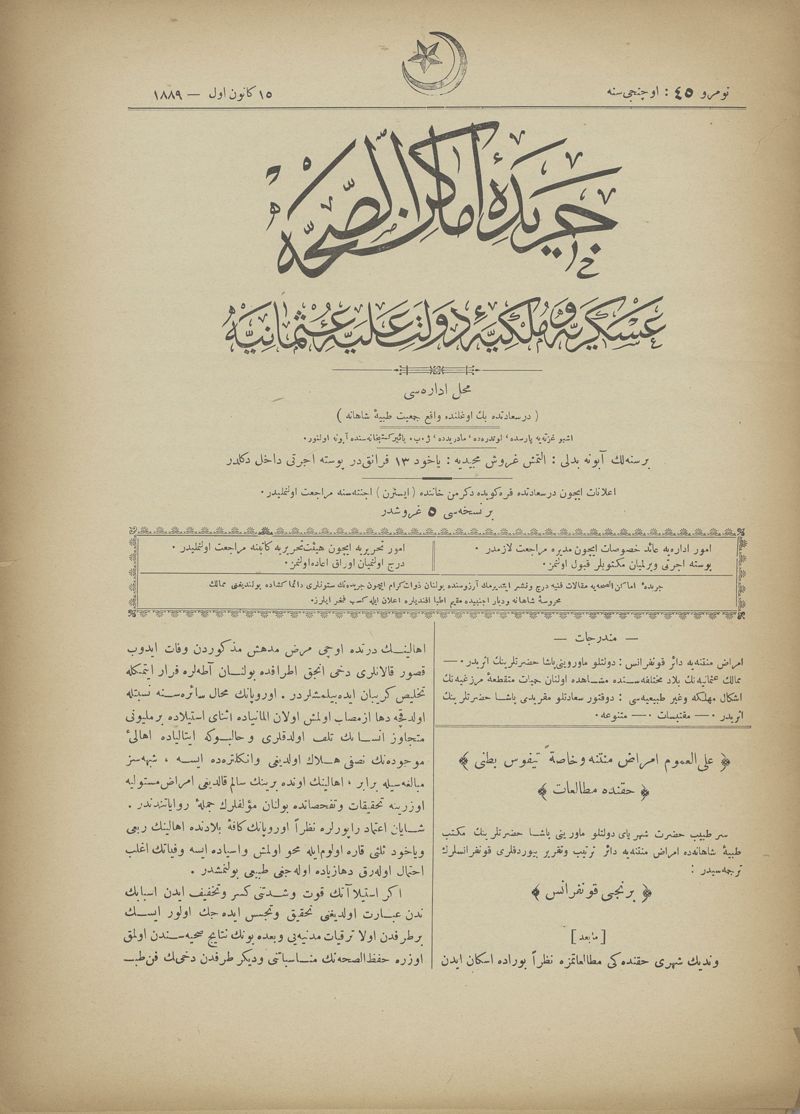 نومرو ٤٥ : اوچنجی سنه
١٥ كانون اول — ١٨٨٩
جریدۀ اماكن الصحه
عسكریه و ملكیۀ دولت علیۀ عثمانیه
محل اداره سی
( درسعادتده بك اوغلنده واقع جمعیت طبیۀ شاهانه )
اشبو غزته یه پارسده ، لوندره ده ، مادریدده ، ژ . ب . بائییر كتبخانه سنده آبونه اولنور .
بر سنه لك آبونه بدلی : التمش غروش مجیدیه : یاخود ١٣ فرانق در پوسته اجرتی داخل دكلدر
اعلانات ایچون درسعادتده قره كویده دكرمن خاننده ( ایسترن ) اجنته سنه مراجعت اولنملیدر .
بر نسخه سی ٥ غروشدر
امور اداره یه عائد خصوصات ایچون مدیره مراجعت لازمدر .
پوسته اجرتی ویرلمیان مكتوبلر قبول اولنمز .
امور تحریریه ایچون هیئت تحریریه كاتبنه مراجعت اولنملیدر .
درج اولنمیان اوراق اعاده اولنمز .
جریدۀ اماكن الصحه یه مقالات فنیه درج و نشر ایتدیرمك آرزوسنده بولنان ذوات كرام ایچون جریده نك ستونلری دائما كشاده بولندیغنی ممالك
محروسۀ شاهانه و دیار اجنبیه ده مقیم اطبا افندیلره اعلان ایله كسب فخر ایلرز .
— مندرجات —
امراض منتنه یه دائر قونفرانس : دولتلو ماوروینی پاشا حضرتلرینك اثریدر . —
ممالك عثمانیه نك بلاد مختلفه سنده مشاهده اولنان حمیات متقطعۀ مرزغیه نك
اشكال مهلكه وغیر طبیعیه سی : دوقتور سعادتلو مقریدی پاشا حضرتلرینك
اثریدر . — مقتبسات . — متنوعه .
﴿ علی العموم امراض منتنه وخاصةً تیفوس بطنی ﴾
﴿ حقنده مطالعات ﴾
سر طبیب حضرت شهریاری دولتلو ماورینی پاشا حضرتلرینك مكتب
طبیۀ شاهانه ده امراض منتنه یه دائر ترتیب وتقریر بیوردقلری قونفرانسلرك
ترجمه سیدر :
﴿ برنجی قونفرانس ﴾
[ مابعد ]
وندیك شهری حقنده كی مطالعاتمزه نظراً بوراده اسكان ایدن
اهالینك درنده اوچی مرض مدهش مذكوردن وفات ایدوب
قصور قالانلری دخی انجق اطرافده بولنان آطه لره فرار ایتمكله
تخلیص كریبان ایده بیلمشلردر . اوروپانك محال سائره سنه نسبتله
اولدقجه دها از مصاب اولمش اولان المانیاده اثنای استیلاده بر ملیونی
متجاوز انسانك تلف اولدقلری و حالبوكه ایتالیاده اهالئ
موجوده نك نصفی هلاك اولدیغی وانكلتره ده ایسه ، شبهه سز
مبالغه سیله برابر ، اهالینك اونده برینك سالم قالدیغی امراض مستولیه
اوزرینه تحقیقات و تفحصاتده بولنان مؤلفلرك جملۀ روایاتندندر .
شایان اعتماد راپورلره نظراً اوروپانك كافۀ بلادنده اهالینك ربعی
ویاخود ثلثی قاره اولوم ایله محو اولمش واسیاده ایسه وفیاتك اغلب
احتمال اوله رق دها زیاده اوله جغی طبیعی بولنمشدر .
اكر استیلاآتك قوت وشدتنی كسر وتخفیف ایدن اسبابك
ندن عبارت اولدیغنی تحقیق وتجسس ایده جك اولور ایسك
بر طرفدن اولا ترقیات مدنیه یی وبعده بونك نتایج صحیه سندن اولمق
اوزره حفظ الصحه نك مناسباتنی ودیكر طرفدن دخی ك فن طبـ